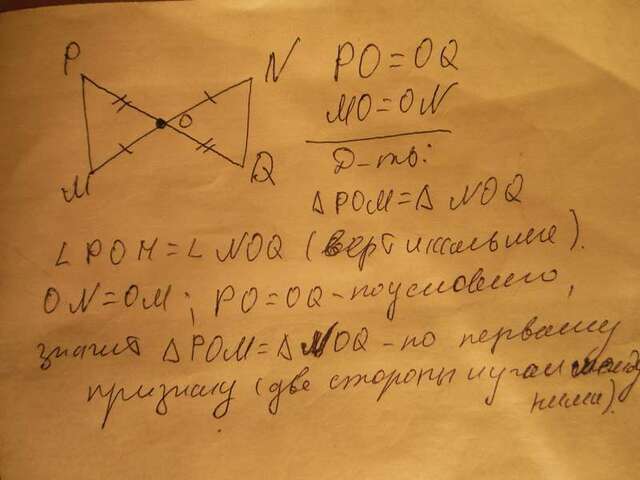 P N PO=OQ
O MO=ON
M Q Д-ть:
Δ POM=Δ NOQ
∠ POM=∠ NOQ (вертикальные).
ON=OM; PO=OQ-по условию,
значит Δ POM=Δ NOQ-по первому
признаку (две стороны и угол между
ними).